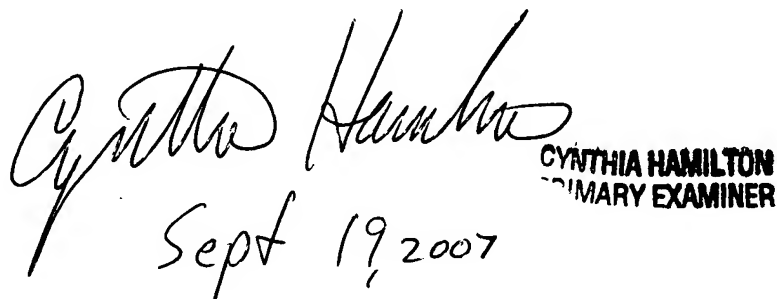 Cynthia Hamilton
CYNTHIA HAMILTON
PRIMARY EXAMINER
Sept 19, 2007